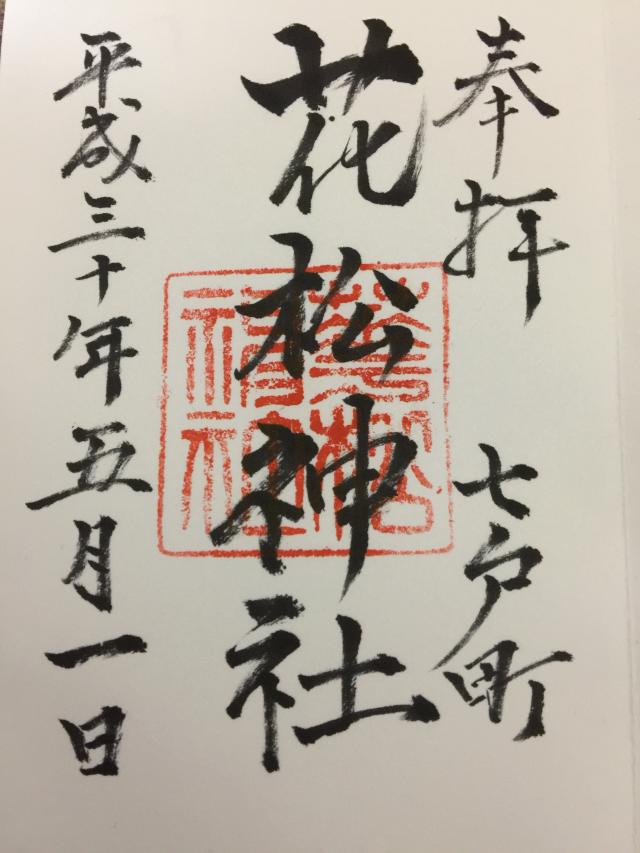 奉拝 七戸町
花松神社
平成三十年五月一日